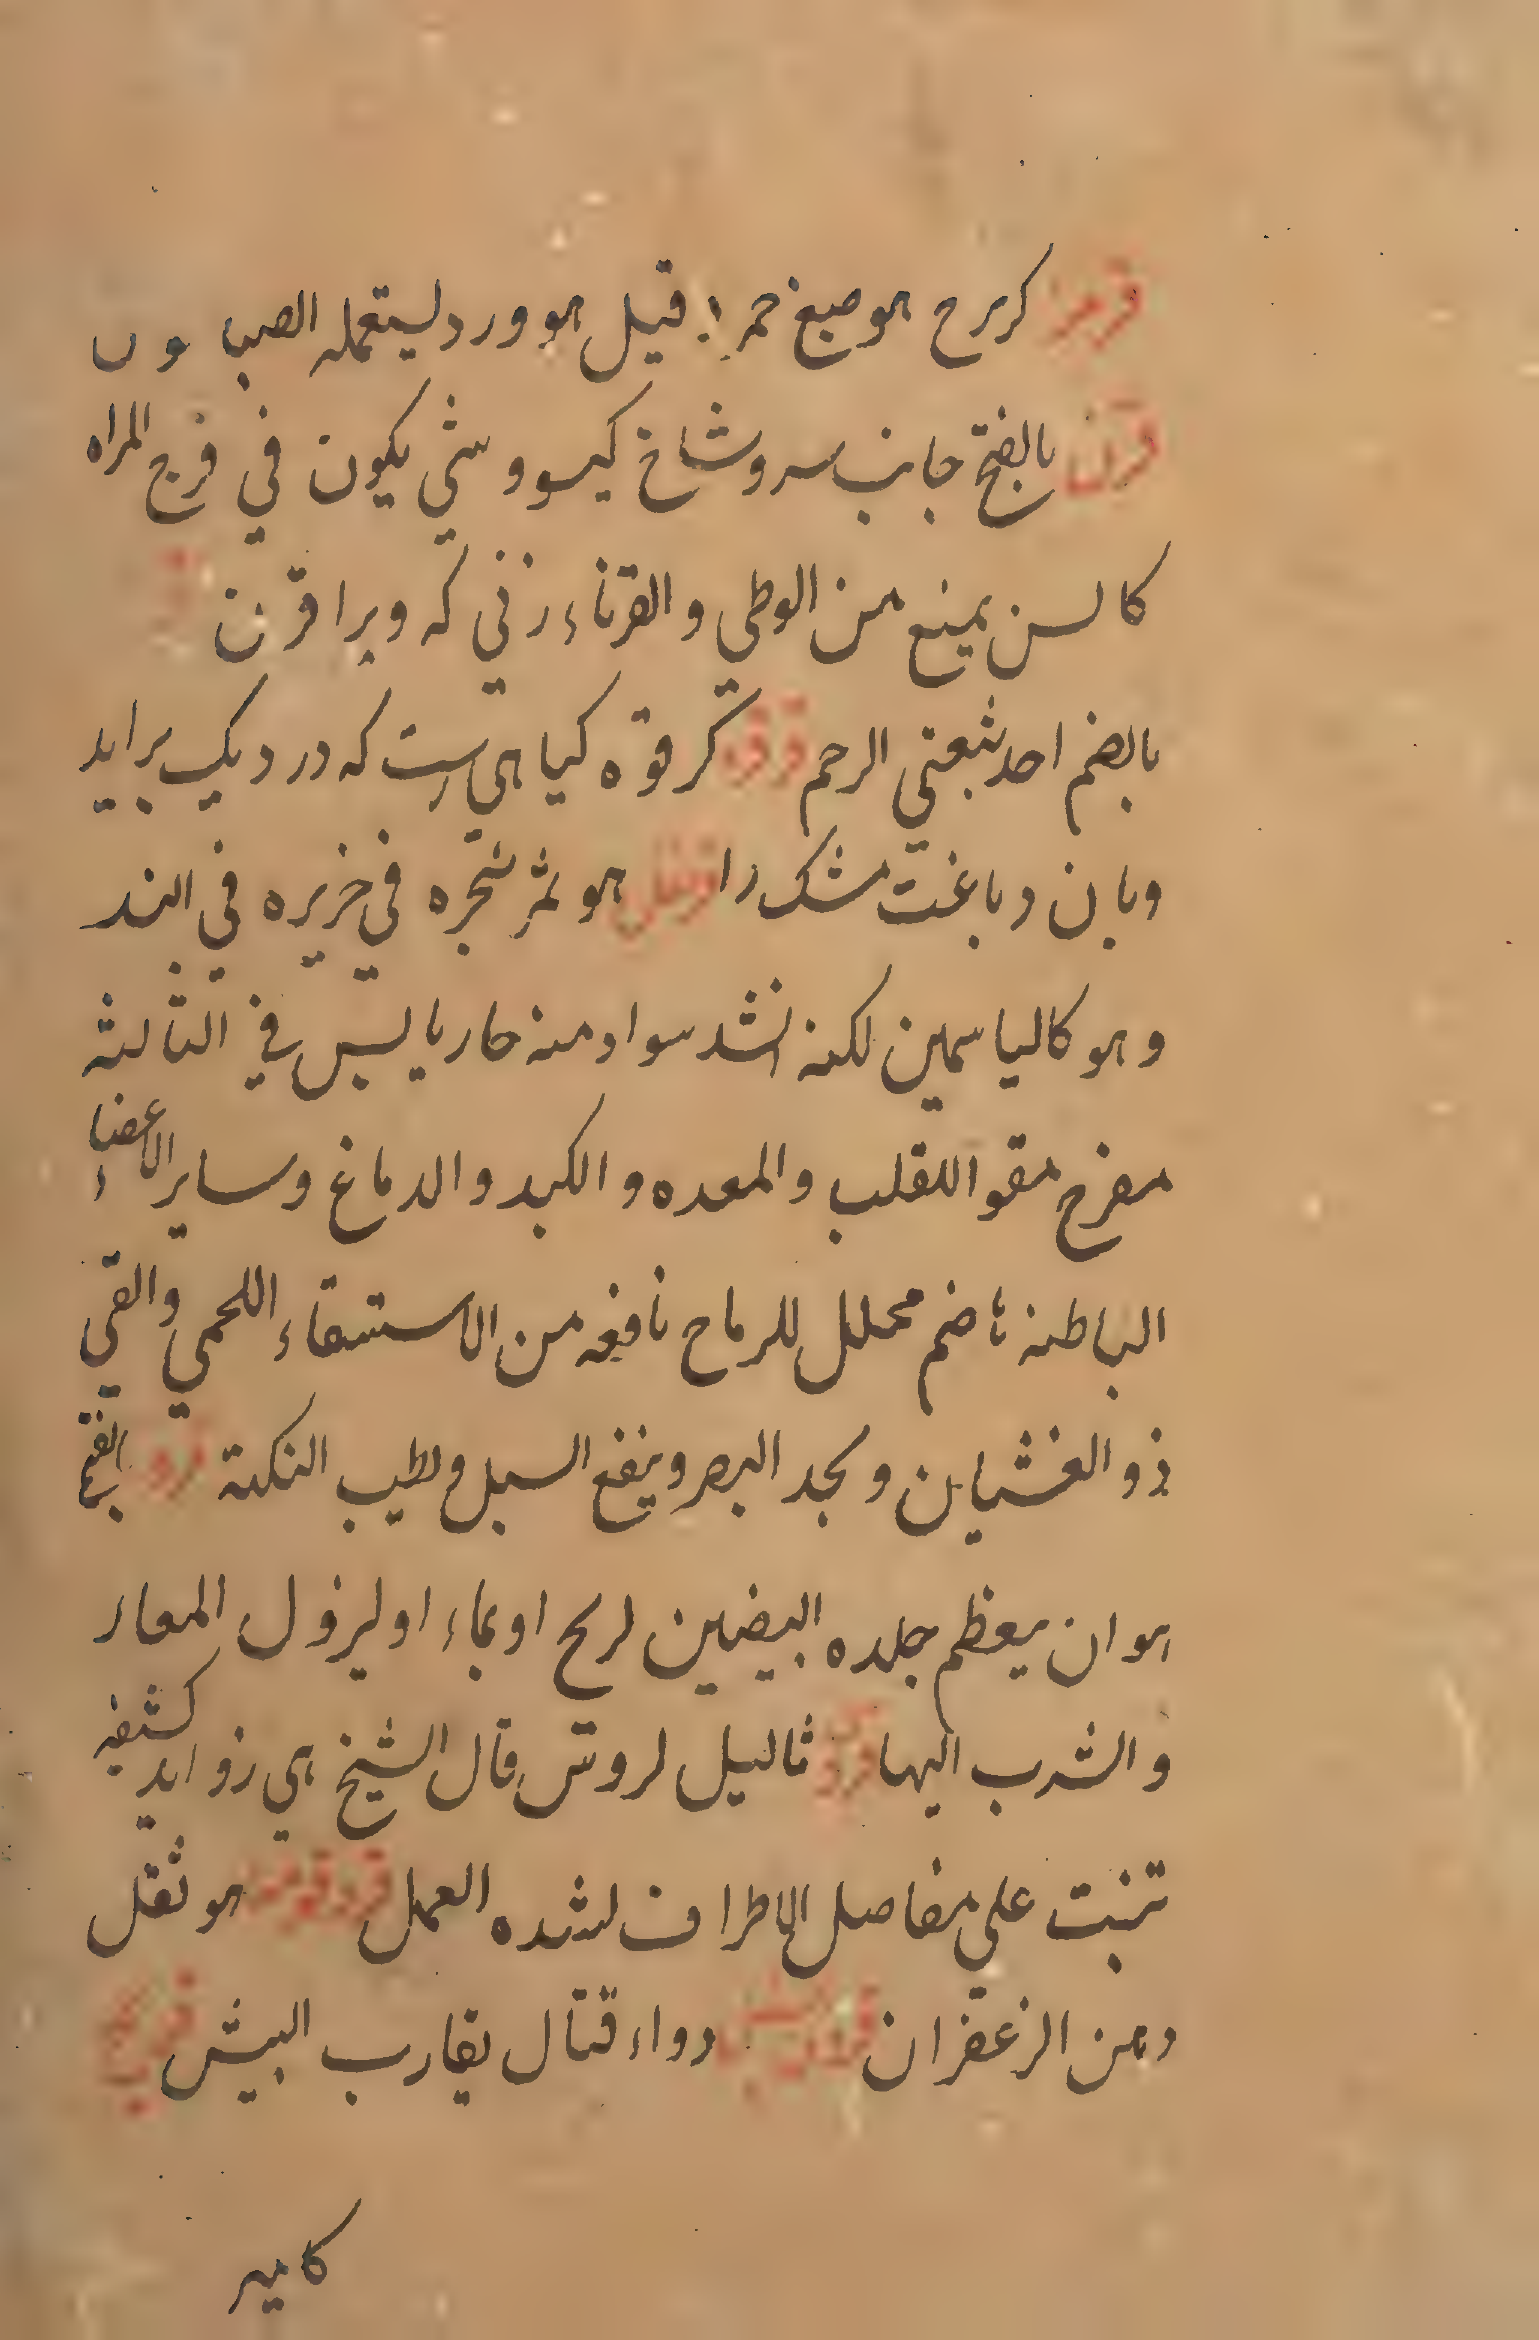 قرمز كبرح هو صبغ حمر قيل هو ورد ليستعمله الصباغون
قرن بالفتح جانب سر و شاخ كيسو و شي يكون في فرج المراه
كالسن يمنع من الوطي والقرناء زني كه ويرا قرن
بالضم احد شعبتي الرحم قرقه كرقوه كياهي است كه در ديك برايد
وبان دباغت مشك را قرنفل هو ثمر شجره في جزيره في الهند
وهو كالياسمين لكنه اشد سوادا منه حار يابس في الثالثه
مفرح مقو اللقلب والمعده والكبد والدماغ وساير الاعضاء
الباطنه هاضم محلل للرياح نافعه من الاستسقاء اللحمي والقي
ذو الغشيان و يحد البصر وينفع السبل و يطيب النكهة قرو بالفتح
هو ان يعظم جلده البيضين لريح او بماء او لنزول المعار
والشرب اليها ثاليل لروتس قال الشيخ هي زوايد كثيفه
تنبت علي مفاصل الاطراف لشده العمل قرقومعا هو ثقل
دهن الزعفران دواء قتال يقارب البيش قريح
كامير